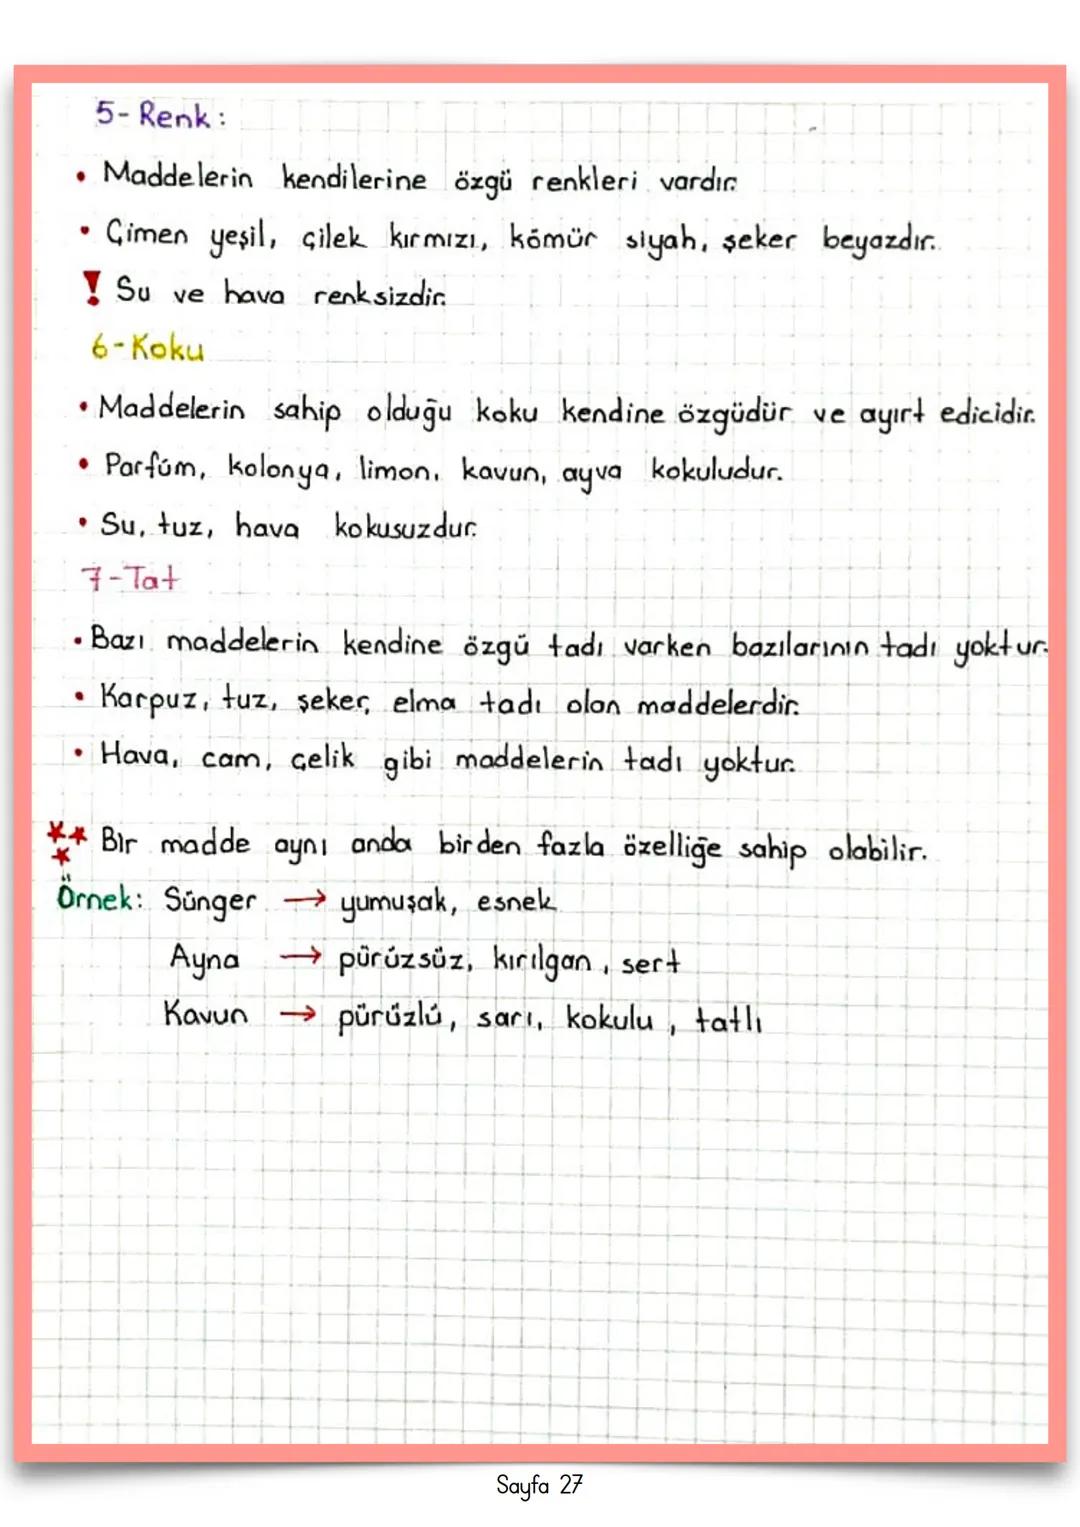 5- Renk:
• Maddelerin kendilerine özgü renkleri vardır.
• Çimen yeşil, çilek kırmızı, kömür siyah, şeker beyazdır.
! Su ve hava renksizdir.
6- Koku
• Maddelerin sahip olduğu koku kendine özgüdür ve ayırt edicidir.
• Parfüm, kolonya, limon, kavun, ayva kokuludur.
• Su, tuz, hava kokusuzdur.
7-Tat
• Bazı maddelerin kendine özgü tadı varken bazılarının tadı yoktur.
• Karpuz, tuz, şeker, elma tadı olan maddelerdir.
• Hava, cam, çelik gibi maddelerin tadı yoktur.
*** Bir madde aynı anda birden fazla özelliğe sahip olabilir.
Örnek: Sünger → yumuşak, esnek
Ayna → pürüzsüz, kırılgan, sert
Kavun → pürüzlü, sarı, kokulu, tatlı
Sayfa 27